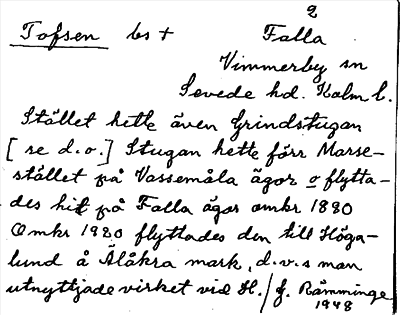 2
Tofsen bs + Falla
Vimmerby sn
Sevede hd. Kalm l.
Stället hette även Grindstugan
[ se d.o.] Stugan hette förr Marse-
stället på Vassemåla ägor o flytta-
des hit på Falla ägor omkr 1880
Omkr 1920 flyttades den till Höga-
lund å Ålåkra mark, d.v.s man
utnyttjade virket vid H./ J. Rämminge
1948